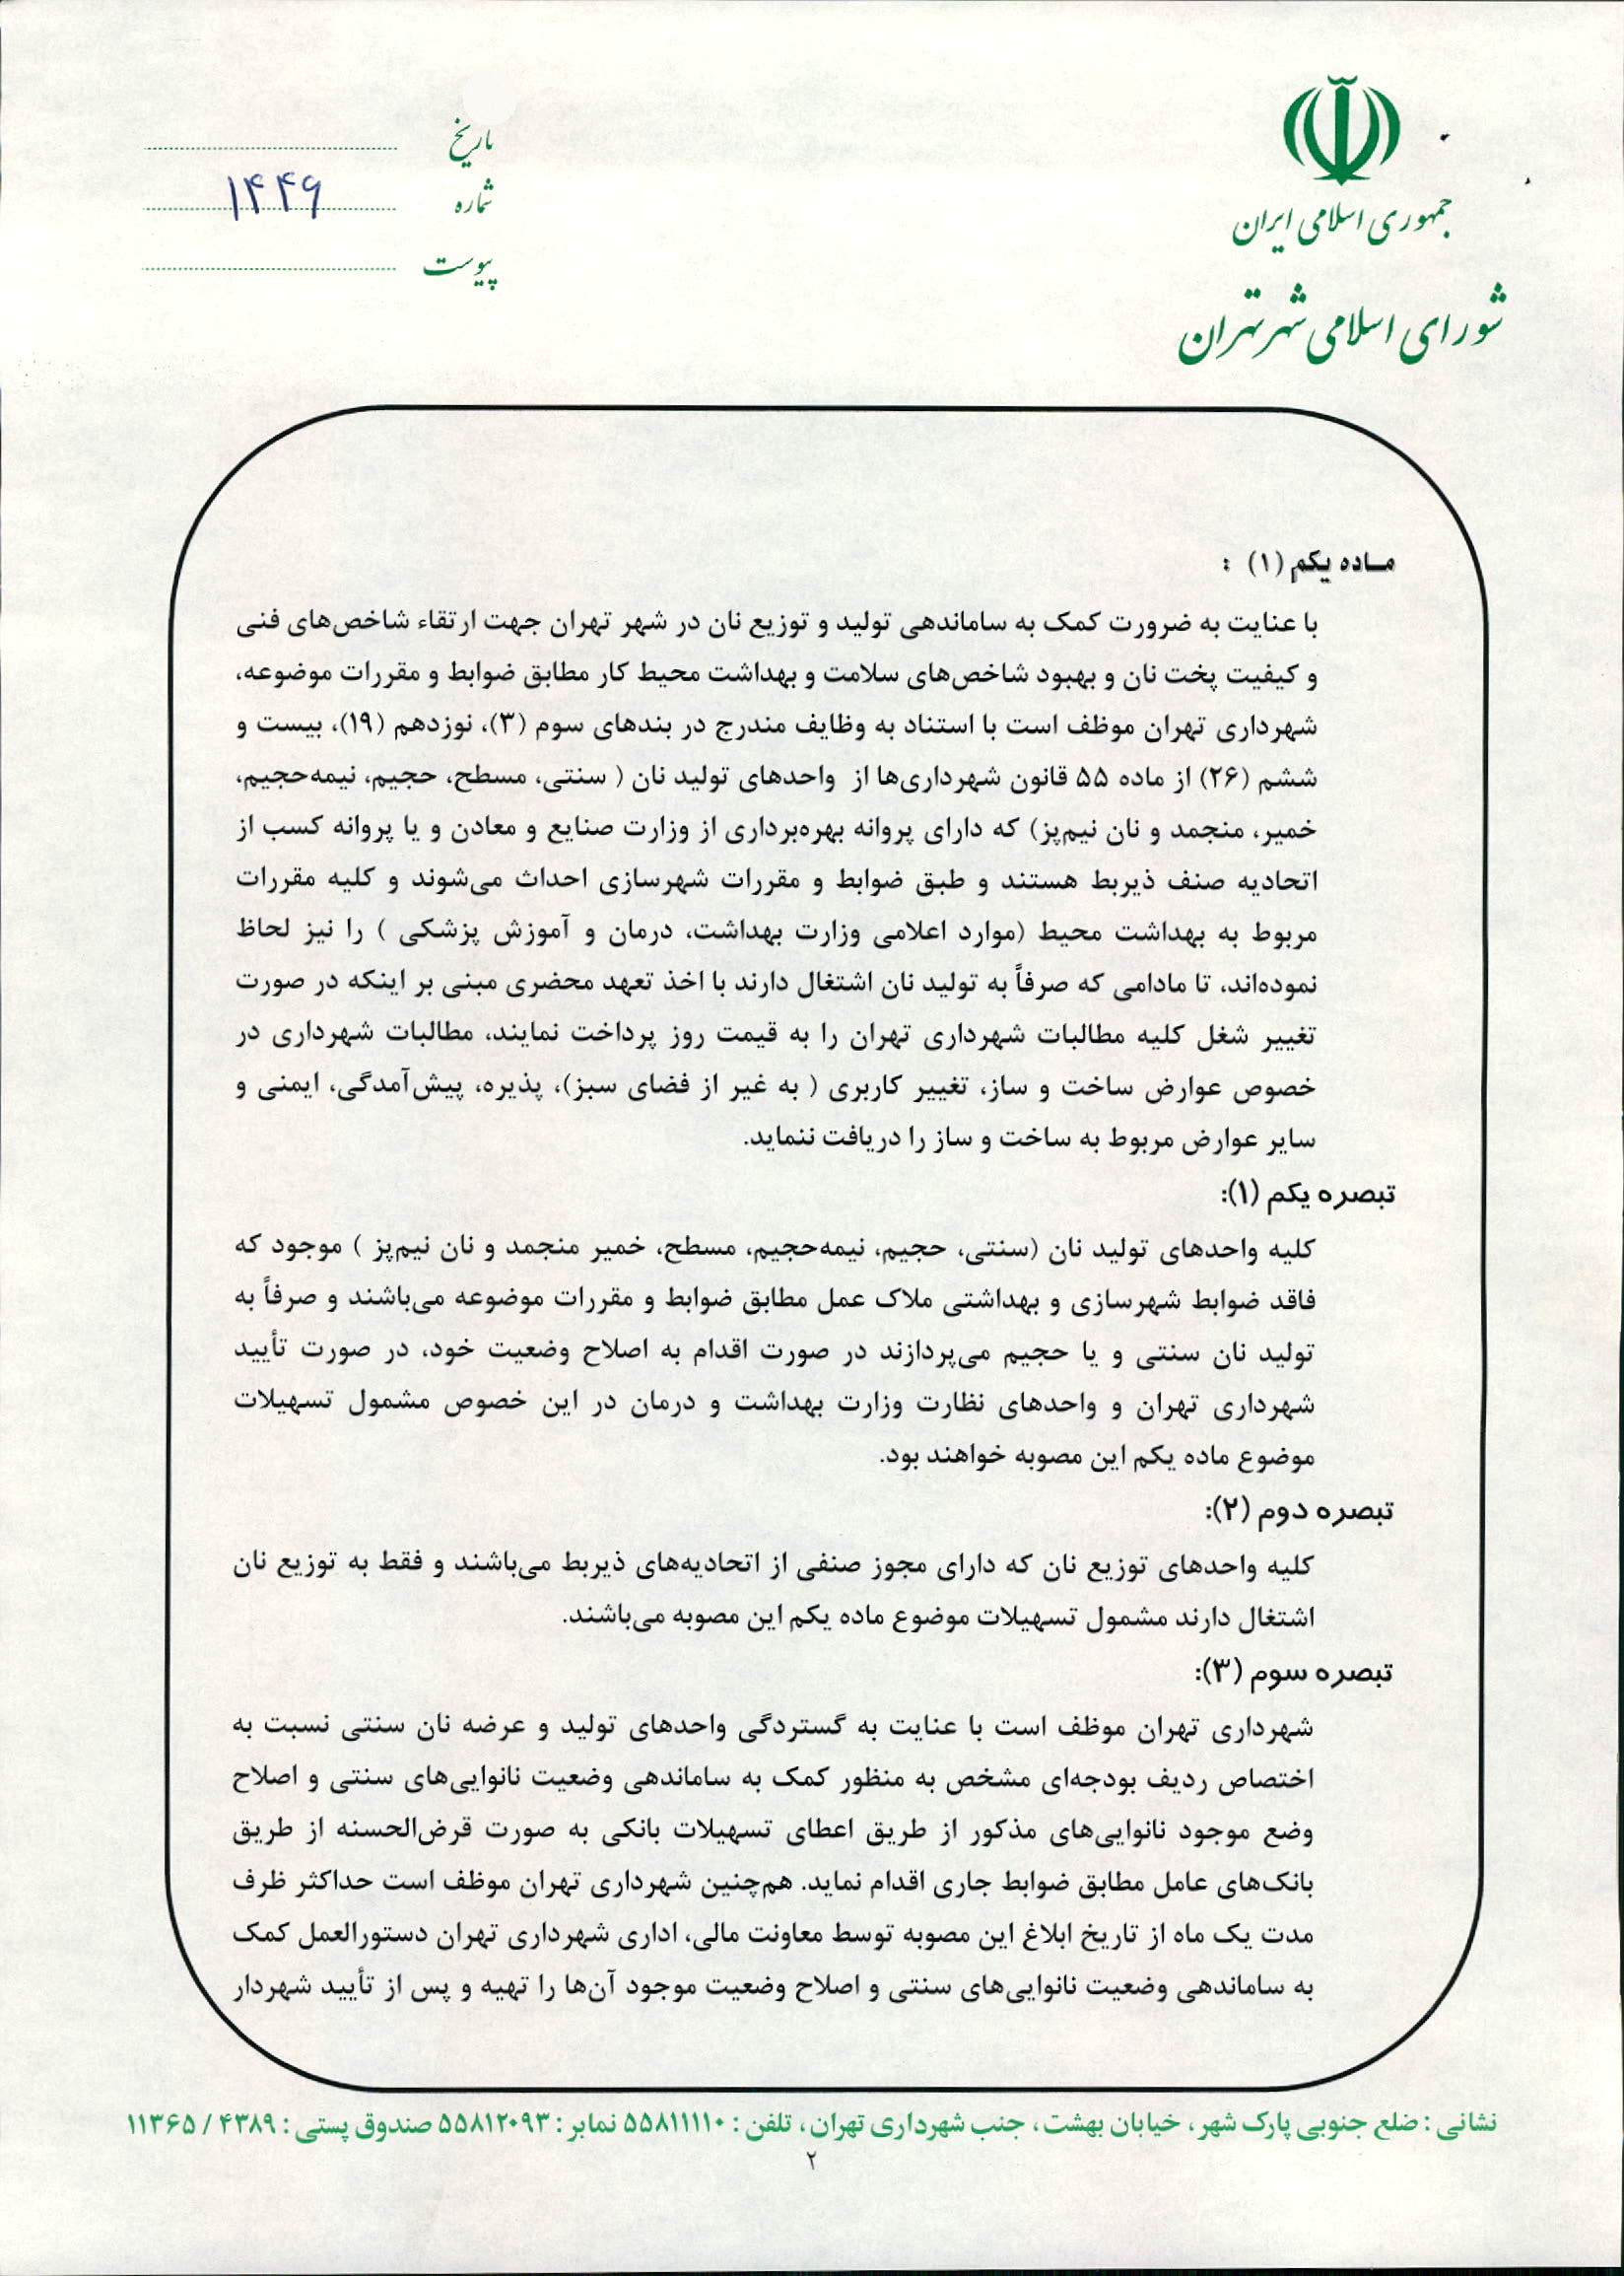 جمهوری اسلامی ایران
شورای اسلامی شهر تهران
تاریخ
شماره ۱۴۴۶
پیوست
ماده یکم (۱) :
با عنایت به ضرورت کمک به ساماندهی تولید و توزیع نان در شهر تهران جهت ارتقاء شاخص‌های فنی
و کیفیت پخت نان و بهبود شاخص‌های سلامت و بهداشت محیط کار مطابق ضوابط و مقررات موضوعه،
شهرداری تهران موظف است با استناد به وظایف مندرج در بندهای سوم (۳)، نوزدهم (۱۹)، بیست و
ششم (۲۶) از ماده ۵۵ قانون شهرداری‌ها از واحدهای تولید نان ( سنتی، مسطح، حجیم، نیمه‌حجیم،
خمیر، منجمد و نان نیم‌پز) که دارای پروانه بهره‌برداری از وزارت صنایع و معادن و یا پروانه کسب از
اتحادیه صنف ذیربط هستند و طبق ضوابط و مقررات شهرسازی احداث می‌شوند و کلیه مقررات
مربوط به بهداشت محیط (موارد اعلامی وزارت بهداشت، درمان و آموزش پزشکی ) را نیز لحاظ
نموده‌اند، تا مادامی که صرفاً به تولید نان اشتغال دارند با اخذ تعهد محضری مبنی بر اینکه در صورت
تغییر شغل کلیه مطالبات شهرداری تهران را به قیمت روز پرداخت نمایند، مطالبات شهرداری در
خصوص عوارض ساخت و ساز، تغییر کاربری ( به غیر از فضای سبز)، پذیره، پیش‌آمدگی، ایمنی و
سایر عوارض مربوط به ساخت و ساز را دریافت ننماید.
تبصره یکم (۱):
کلیه واحدهای تولید نان (سنتی، حجیم، نیمه‌حجیم، مسطح، خمیر منجمد و نان نیم‌پز ) موجود که
فاقد ضوابط شهرسازی و بهداشتی ملاک عمل مطابق ضوابط و مقررات موضوعه می‌باشند و صرفاً به
تولید نان سنتی و یا حجیم می‌پردازند در صورت اقدام به اصلاح وضعیت خود، در صورت تأیید
شهرداری تهران و واحدهای نظارت وزارت بهداشت و درمان در این خصوص مشمول تسهیلات
موضوع ماده یکم این مصوبه خواهند بود.
تبصره دوم (۲):
کلیه واحدهای توزیع نان که دارای مجوز صنفی از اتحادیه‌های ذیربط می‌باشند و فقط به توزیع نان
اشتغال دارند مشمول تسهیلات موضوع ماده یکم این مصوبه می‌باشند.
تبصره سوم (۳):
شهرداری تهران موظف است با عنایت به گستردگی واحدهای تولید و عرضه نان سنتی نسبت به
اختصاص ردیف بودجه‌ای مشخص به منظور کمک به ساماندهی وضعیت نانوایی‌های سنتی و اصلاح
وضع موجود نانوایی‌های مذکور از طریق اعطای تسهیلات بانکی به صورت قرض‌الحسنه از طریق
بانک‌های عامل مطابق ضوابط جاری اقدام نماید. هم‌چنین شهرداری تهران موظف است حداکثر ظرف
مدت یک ماه از تاریخ ابلاغ این مصوبه توسط معاونت مالی، اداری شهرداری تهران دستورالعمل کمک
به ساماندهی وضعیت نانوایی‌های سنتی و اصلاح وضعیت موجود آن‌ها را تهیه و پس از تأیید شهردار
نشانی : ضلع جنوبی پارک شهر، خیابان بهشت، جنب شهرداری تهران، تلفن : ۵۵۸۱۱۱۱۰ نمابر : ۵۵۸۱۲۰۹۳ صندوق پستی : ۴۳۸۹ / ۱۱۳۶۵
۲